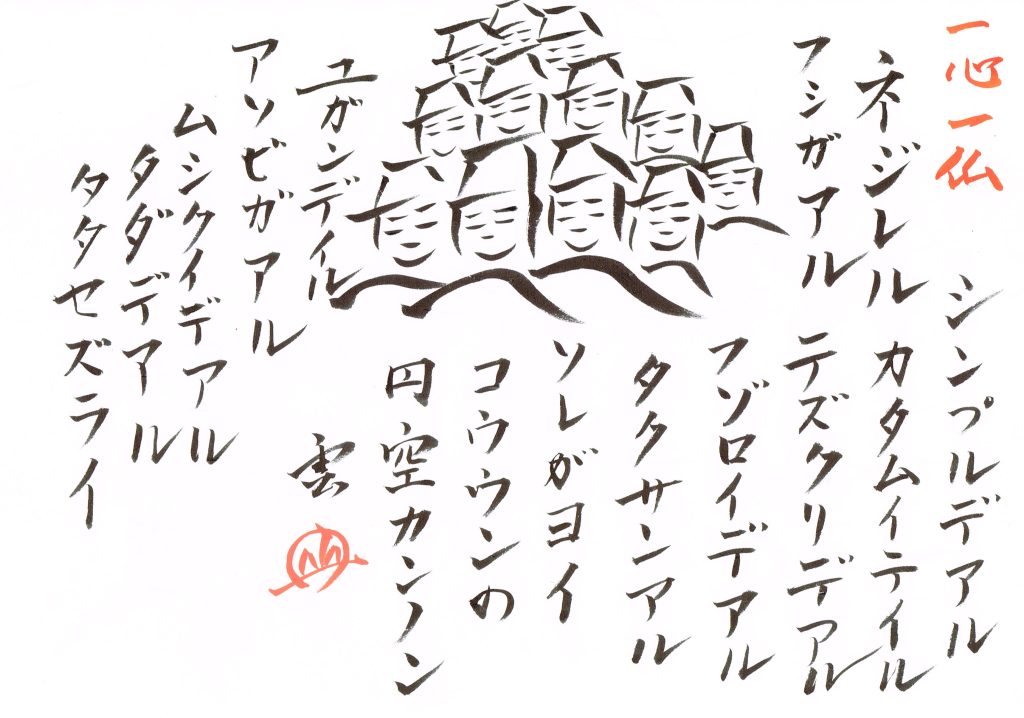 一心一仏
シンプルデアル
ネジレル
カタムイテイル
フシガアル
テズクリデアル
フゾロイデアル
タクサンアル
ユガンデイル
アソビガアル
ムシクイデアル
タダデアル
タタセズライ
ソレがヨイ
コウウンの
円空カンノン
雲